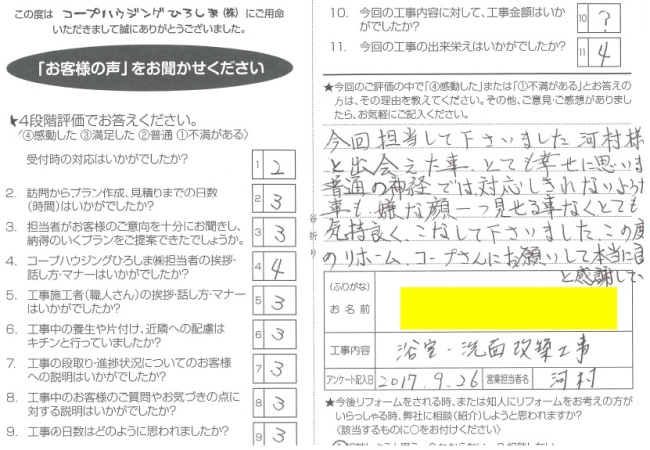 この度は コープハウジングひろしま(株) にご用命
いただきまして誠にありがとうございました。
「お客様の声」をお聞かせください
★4段階評価でお答えください。
〈④感動した ③満足した ②普通 ①不満がある〉
受付時の対応はいかがでしたか?
1 2
2. 訪問からプラン作成、見積りまでの日数
(時間)はいかがでしたか?
2 3
3. 担当者がお客様のご意向を十分にお聞きし、
納得のいくプランをご提案できたでしょうか。
3 3
4. コープハウジングひろしま㈱担当者の挨拶・
話し方・マナーはいかがでしたか?
4 4
5. 工事施工者(職人さん)の挨拶・話し方・マナー
はいかがでしたか?
5 3
6. 工事中の養生や片付け、近隣への配慮は
キチンと行っていましたか?
6 3
7. 工事の段取り・進捗状況についてのお客様
への説明はいかがでしたか?
7 3
8. 工事中のお客様のご質問やお気づきの点に
対する説明はいかがでしたか?
8 3
9. 工事の日数はどのように思われましたか?
9 3
谷折り
10. 今回の工事内容に対して、工事金額はいか
がでしたか?
10 ?
11. 今回の工事の出来栄えはいかがでしたか?
11 4
★今回のご評価の中で「④感動した」または「①不満がある」とお答えの
方は、その理由を教えてください。その他、ご意見・ご感想がありまし
たら、お気軽にご記入ください。
今回担当して下さいました河村様
と出会えた事 とても幸せに思いま
普通の神経では対応しきれないような
事も 嫌な顔一つ見せる事なくとても
気持良く、こなして下さいました。この度
のリホーム、コープさんにお願いして本当に良
と感謝してい
(ふりがな)
お名前
工事内容 浴室・洗面改築工事
アンケート記入日 2017.9.26 営業担当者名 河村
★今後リフォームをされる時、または知人にリフォームをお考えの方が
いらっしゃる時、弊社に相談(紹介)しようと思われますか?
〈該当するものに○をお付けください〉